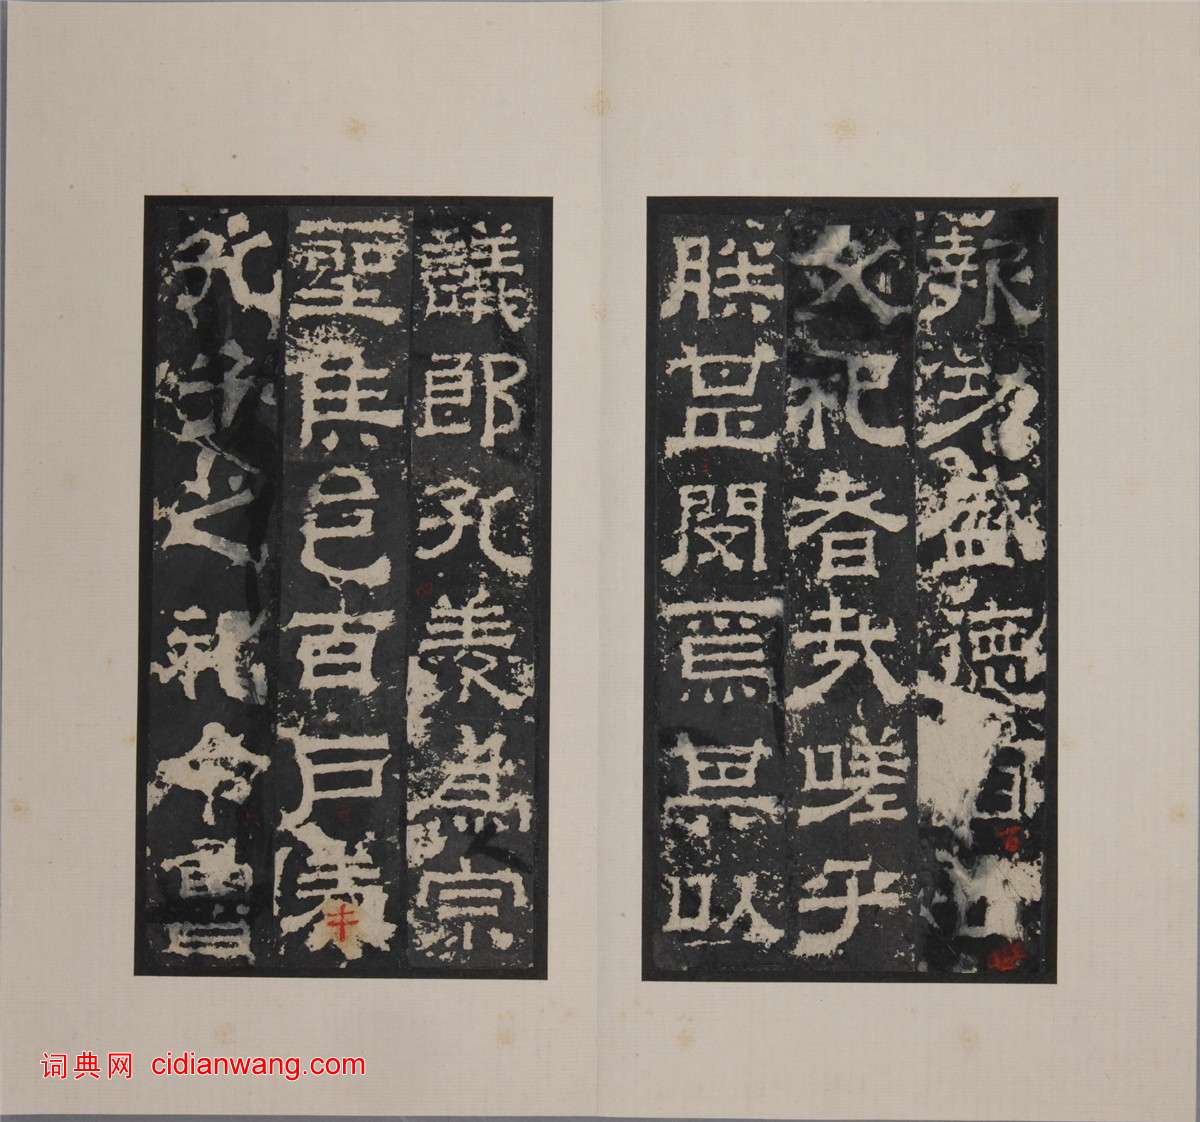 報功盛德百世
必祀者哉嗟乎
朕甚閔焉其以
議郎孔羡為宗
聖侯邑百户奉
孔子之祀令魯
词典网 cidianwang.com